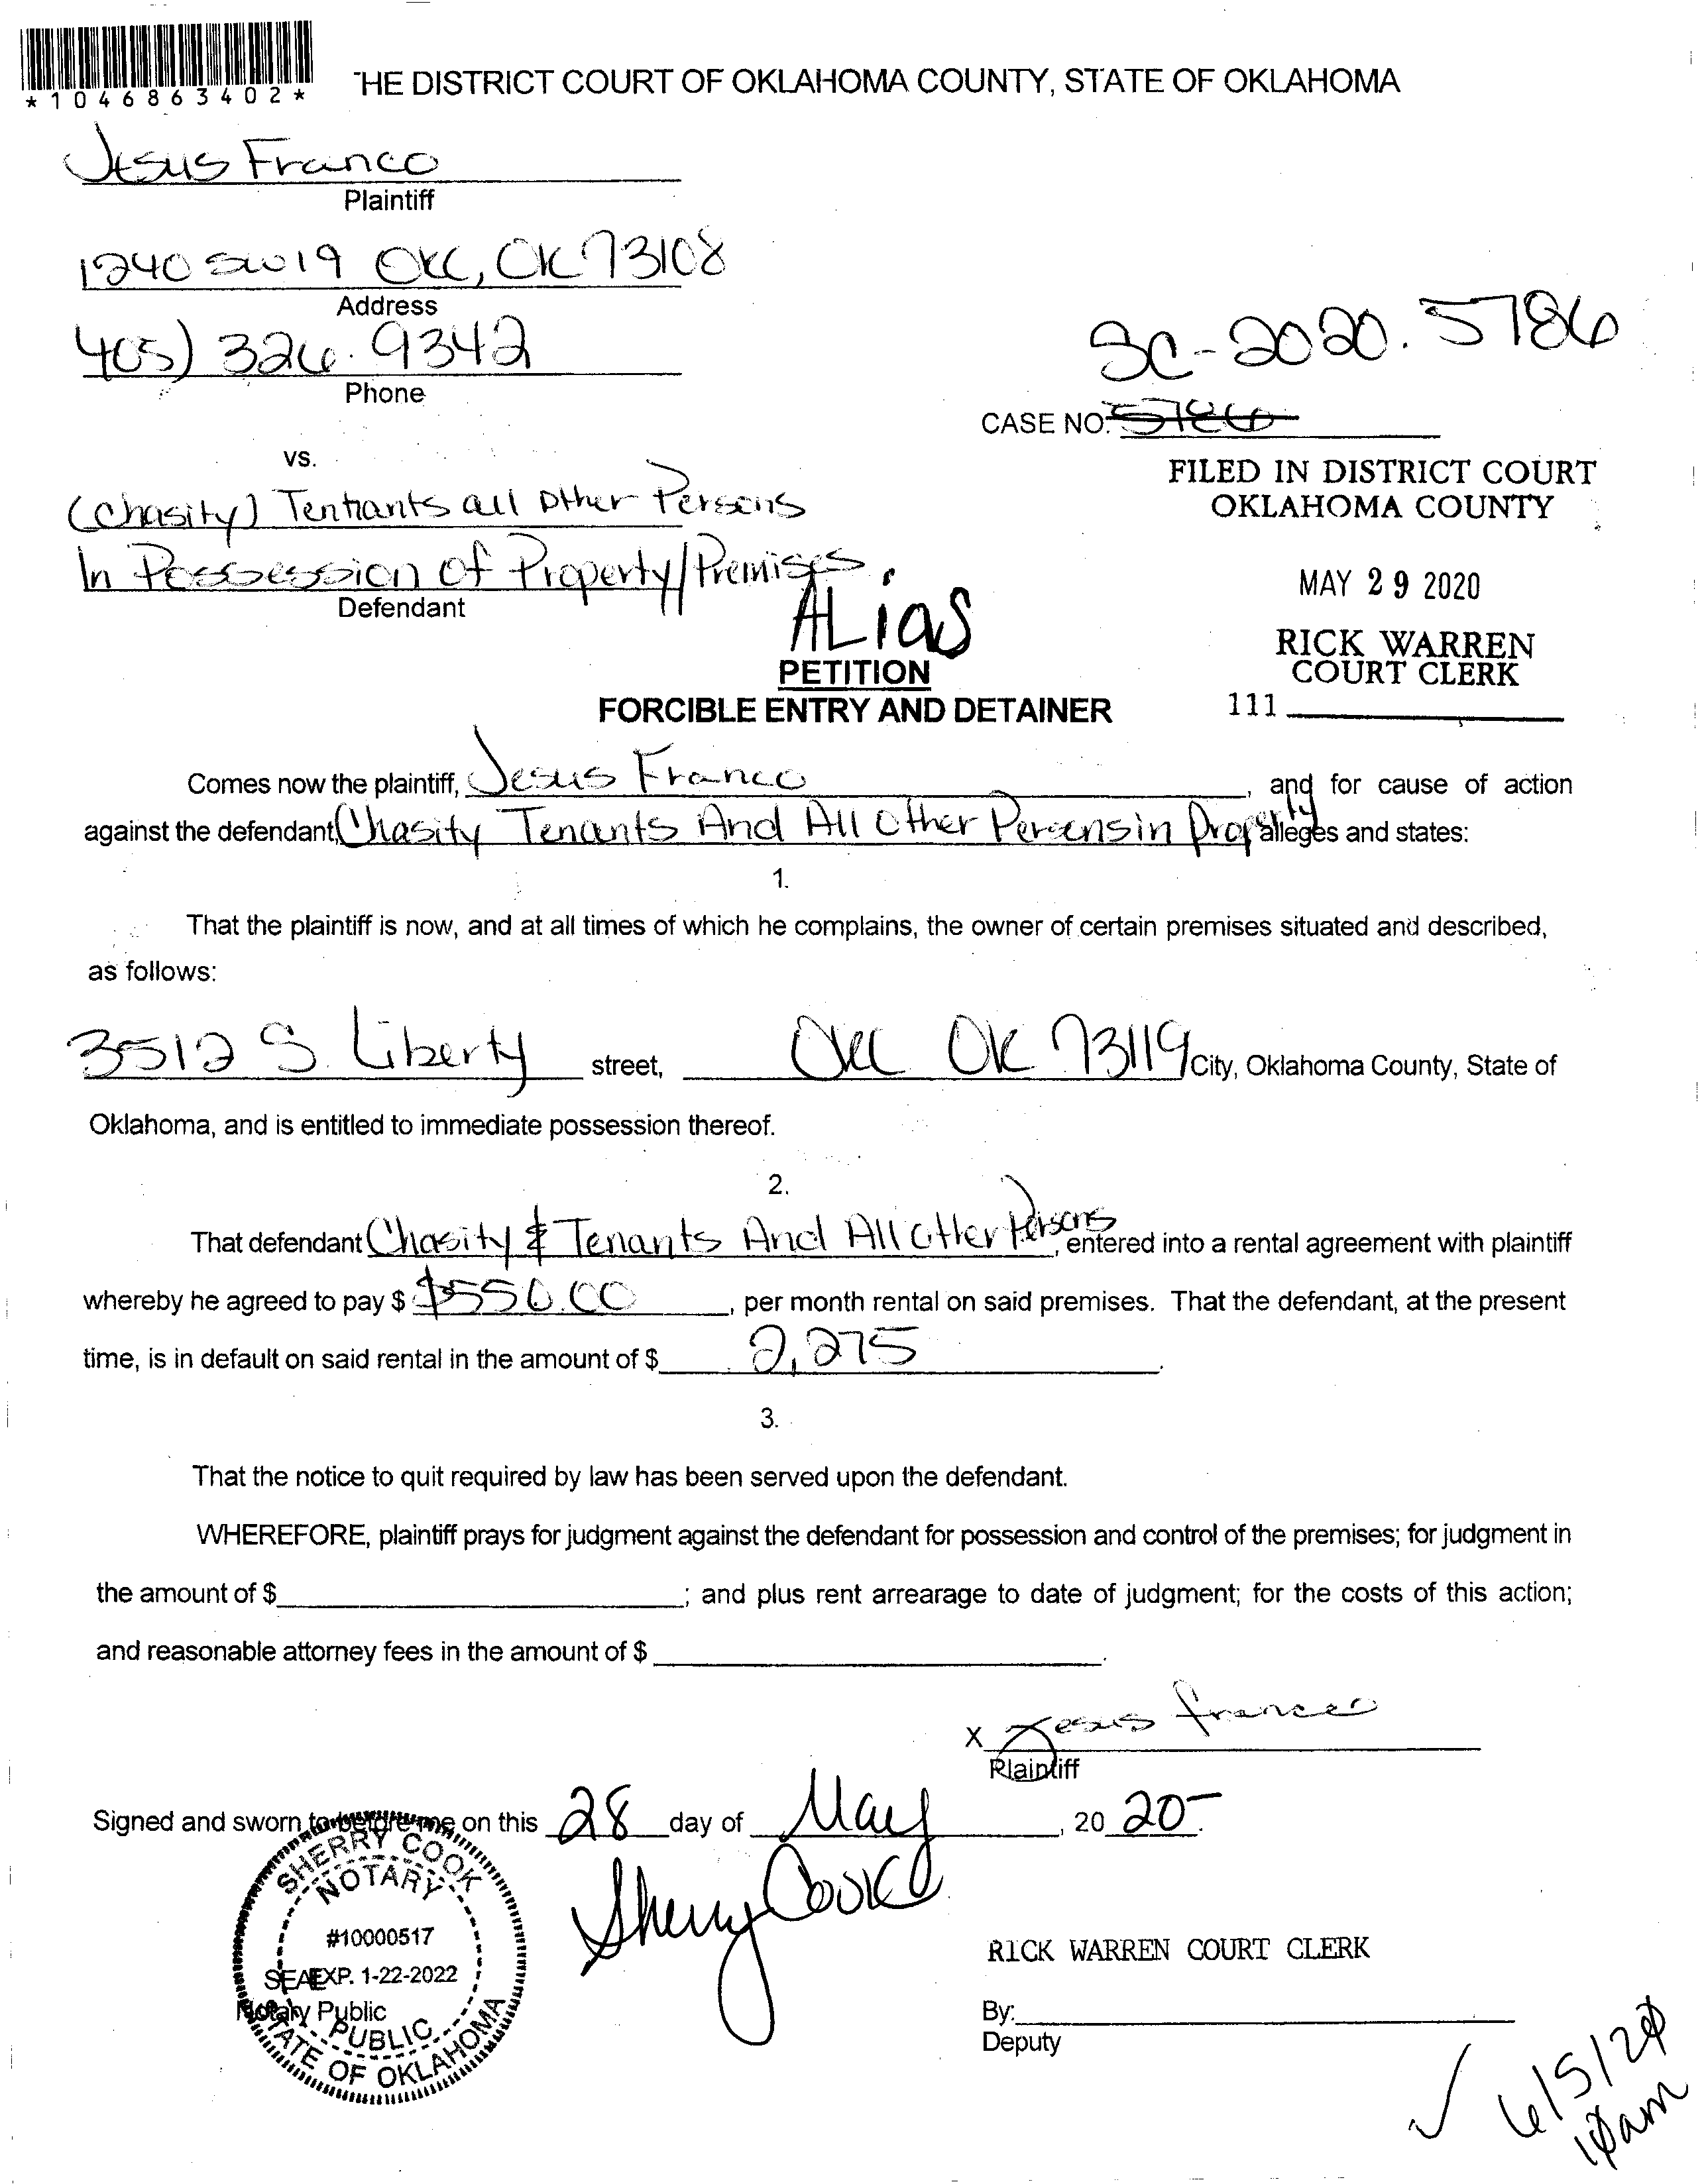 *1046863402*
THE DISTRICT COURT OF OKLAHOMA COUNTY, STATE OF OKLAHOMA
Jesus Franco
Plaintiff
1240 SW 19 OKC, OK 73108
Address
405) 326.9342
Phone
SC-2020.5786
CASE NO. 5786
vs.
FILED IN DISTRICT COURT
OKLAHOMA COUNTY
(Chasity) Tentrants all other Persons
In Possession of Property/Premises.
Defendant
MAY 29 2020
ALias
RICK WARREN
COURT CLERK
PETITION
111
FORCIBLE ENTRY AND DETAINER
Comes now the plaintiff, Jesus Franco, and for cause of action
against the defendant, Chasity Tenants And All Other Persons in Property alleges and states:
1.
That the plaintiff is now, and at all times of which he complains, the owner of certain premises situated and described,
as follows:
3512 S. Liberty street, OKC OK 73119 City, Oklahoma County, State of
Oklahoma, and is entitled to immediate possession thereof.
2.
That defendant Chasity & Tenants And All Other Persons, entered into a rental agreement with plaintiff
whereby he agreed to pay $ $550.00, per month rental on said premises. That the defendant, at the present
time, is in default on said rental in the amount of $ 2,275.
3.
That the notice to quit required by law has been served upon the defendant.
WHEREFORE, plaintiff prays for judgment against the defendant for possession and control of the premises; for judgment in
the amount of $ ; and plus rent arrearage to date of judgment; for the costs of this action;
and reasonable attorney fees in the amount of $ .
X Jesus franco
Plaintiff
Signed and sworn to before me on this 28 day of May, 20 20.
Sherry Cook
SHERRY COOK
NOTARY
#10000517
SEAL EXP. 1-22-2022
Notary Public
PUBLIC
STATE OF OKLAHOMA
RICK WARREN COURT CLERK
By:
Deputy
6/5/20
10am